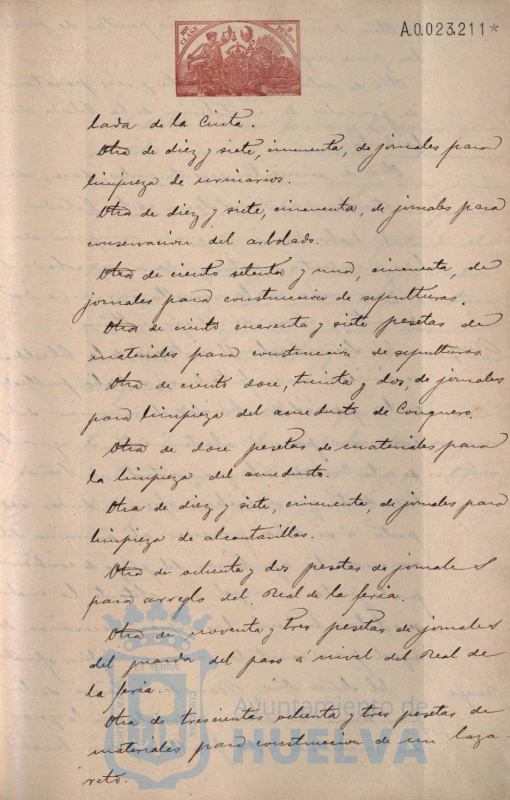 A.0.023.211*
10ª CLASE
PESETAS
lada de la Cinta.
Otra de diez y siete, cincuenta, de jornales para
limpieza de urinarios.
Otra de diez y siete, cincuenta, de jornales para
conservacion del arbolado.
Otra de ciento setenta y una, cincuenta, de
jornales para construccion de sepulturas.
Otra de ciento cuarenta y siete pesetas de
materiales para construccion de sepulturas.
Otra de ciento doce, treinta y dos, de jornales
para limpieza del acueducto de Conquero.
Otra de doce pesetas de materiales para
la limpieza del acueducto.
Otra de diez y siete, cincuenta, de jornales para
limpieza de alcantarillas.
Otra de ochenta y dos pesetas de jornales
para arreglo del Real de la feria.
Otra de noventa y tres pesetas de jornales
del guarda del paso á nivel del Real de
la feria.
Otra de trescientas ochenta y tres pesetas de
materiales para construccion de un laza-
reto.
Ayuntamiento de
HUELVA